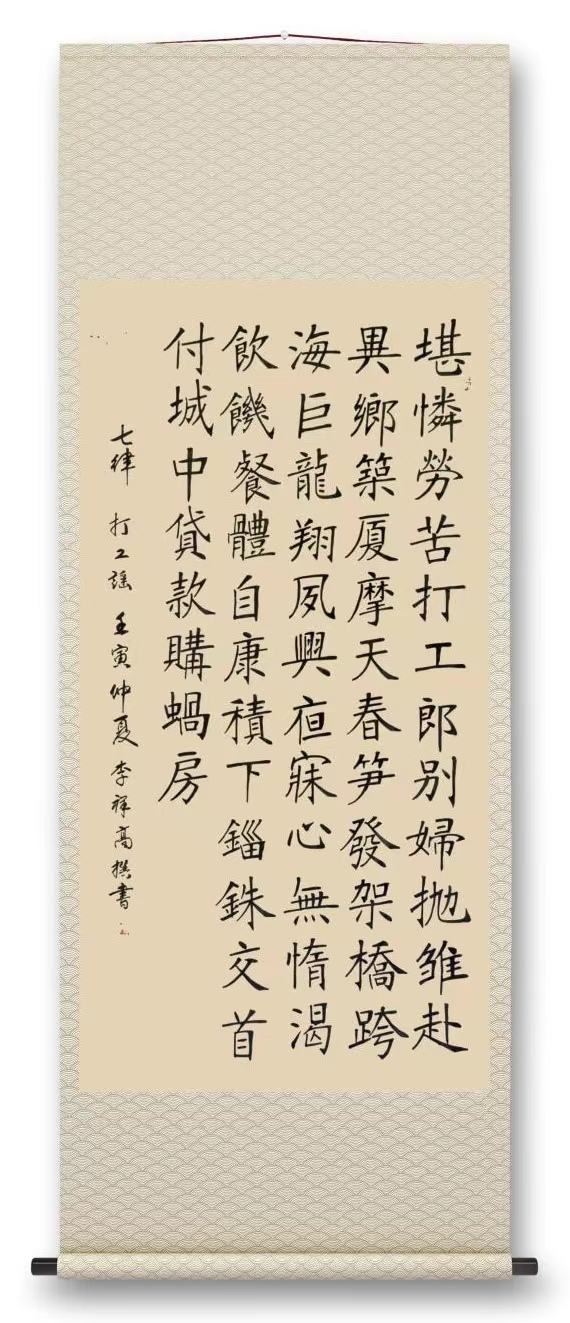 堪憐勞苦打工郎别婦抛雏赴
異鄉築厦摩天春笋發架橋跨
海巨龍翔夙興夜寐心無惰渴
飲饑餐體自康積下錙銖交首
付城中貸款購蝸房
七律 打工謠 壬寅仲夏 李祥高撰書